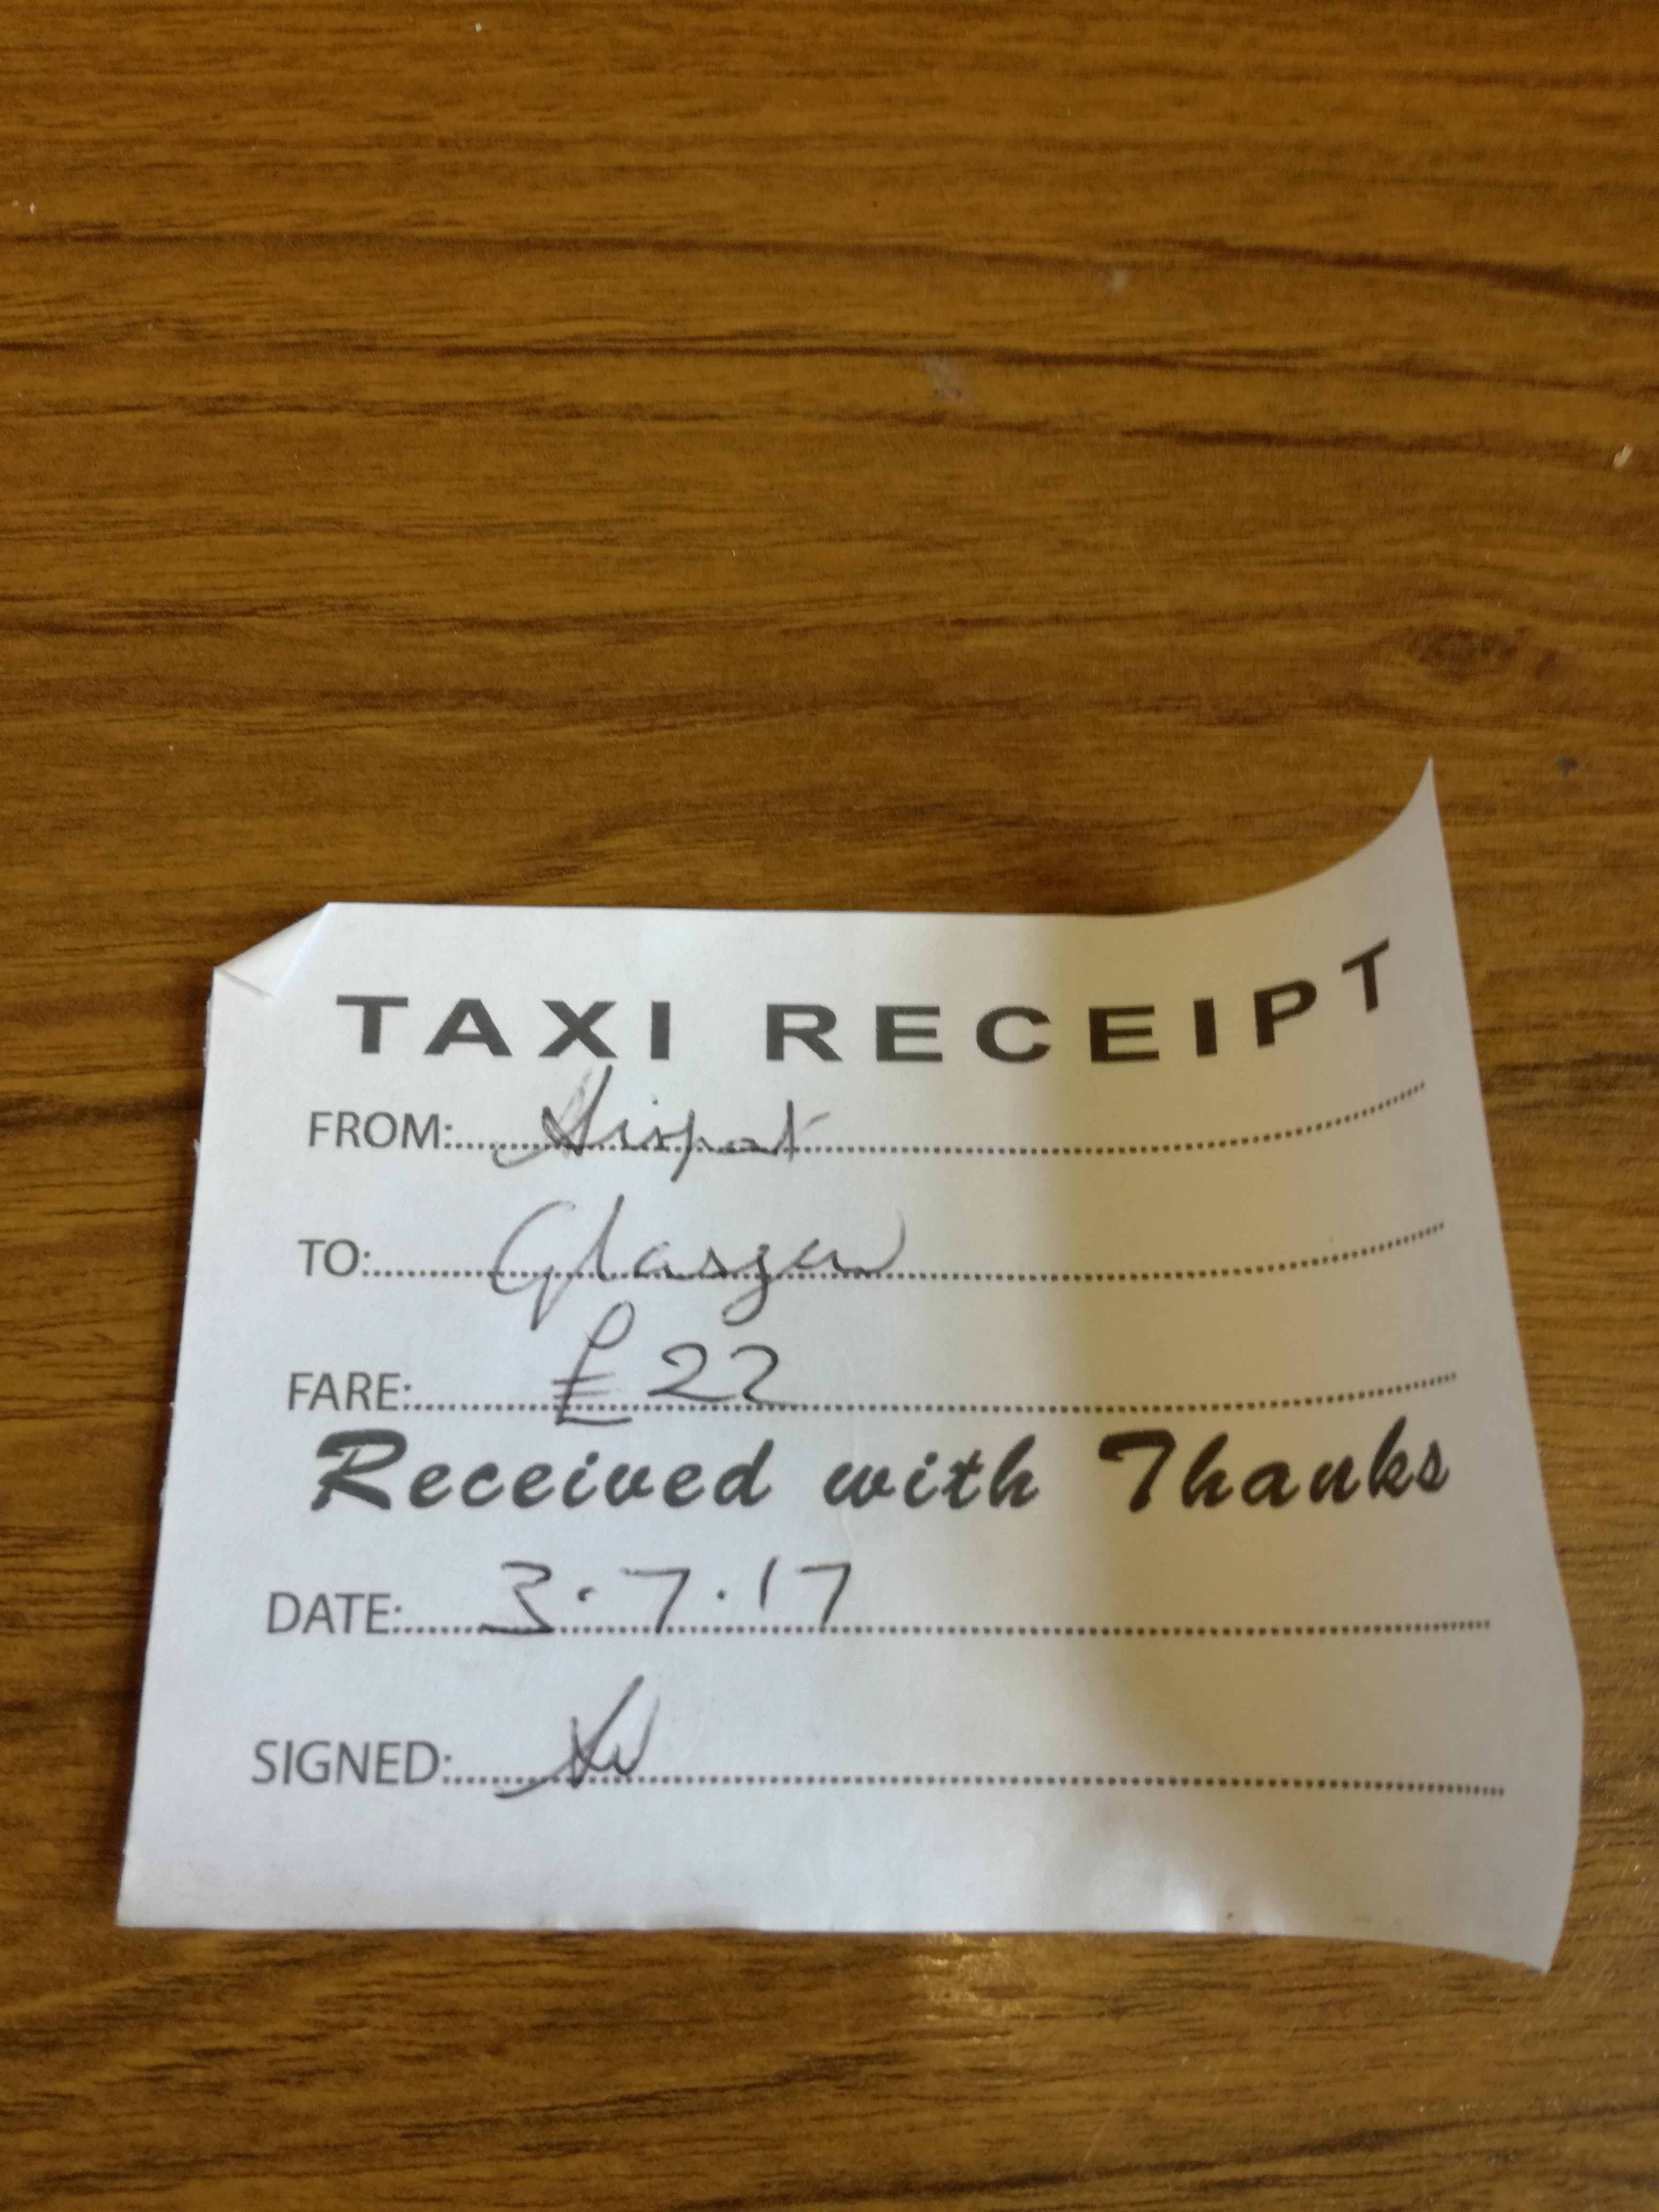 TAXI RECEIPT
FROM: Airport
TO: Glasgow
FARE: £22
Received with Thanks
DATE: 3.7.17
SIGNED: